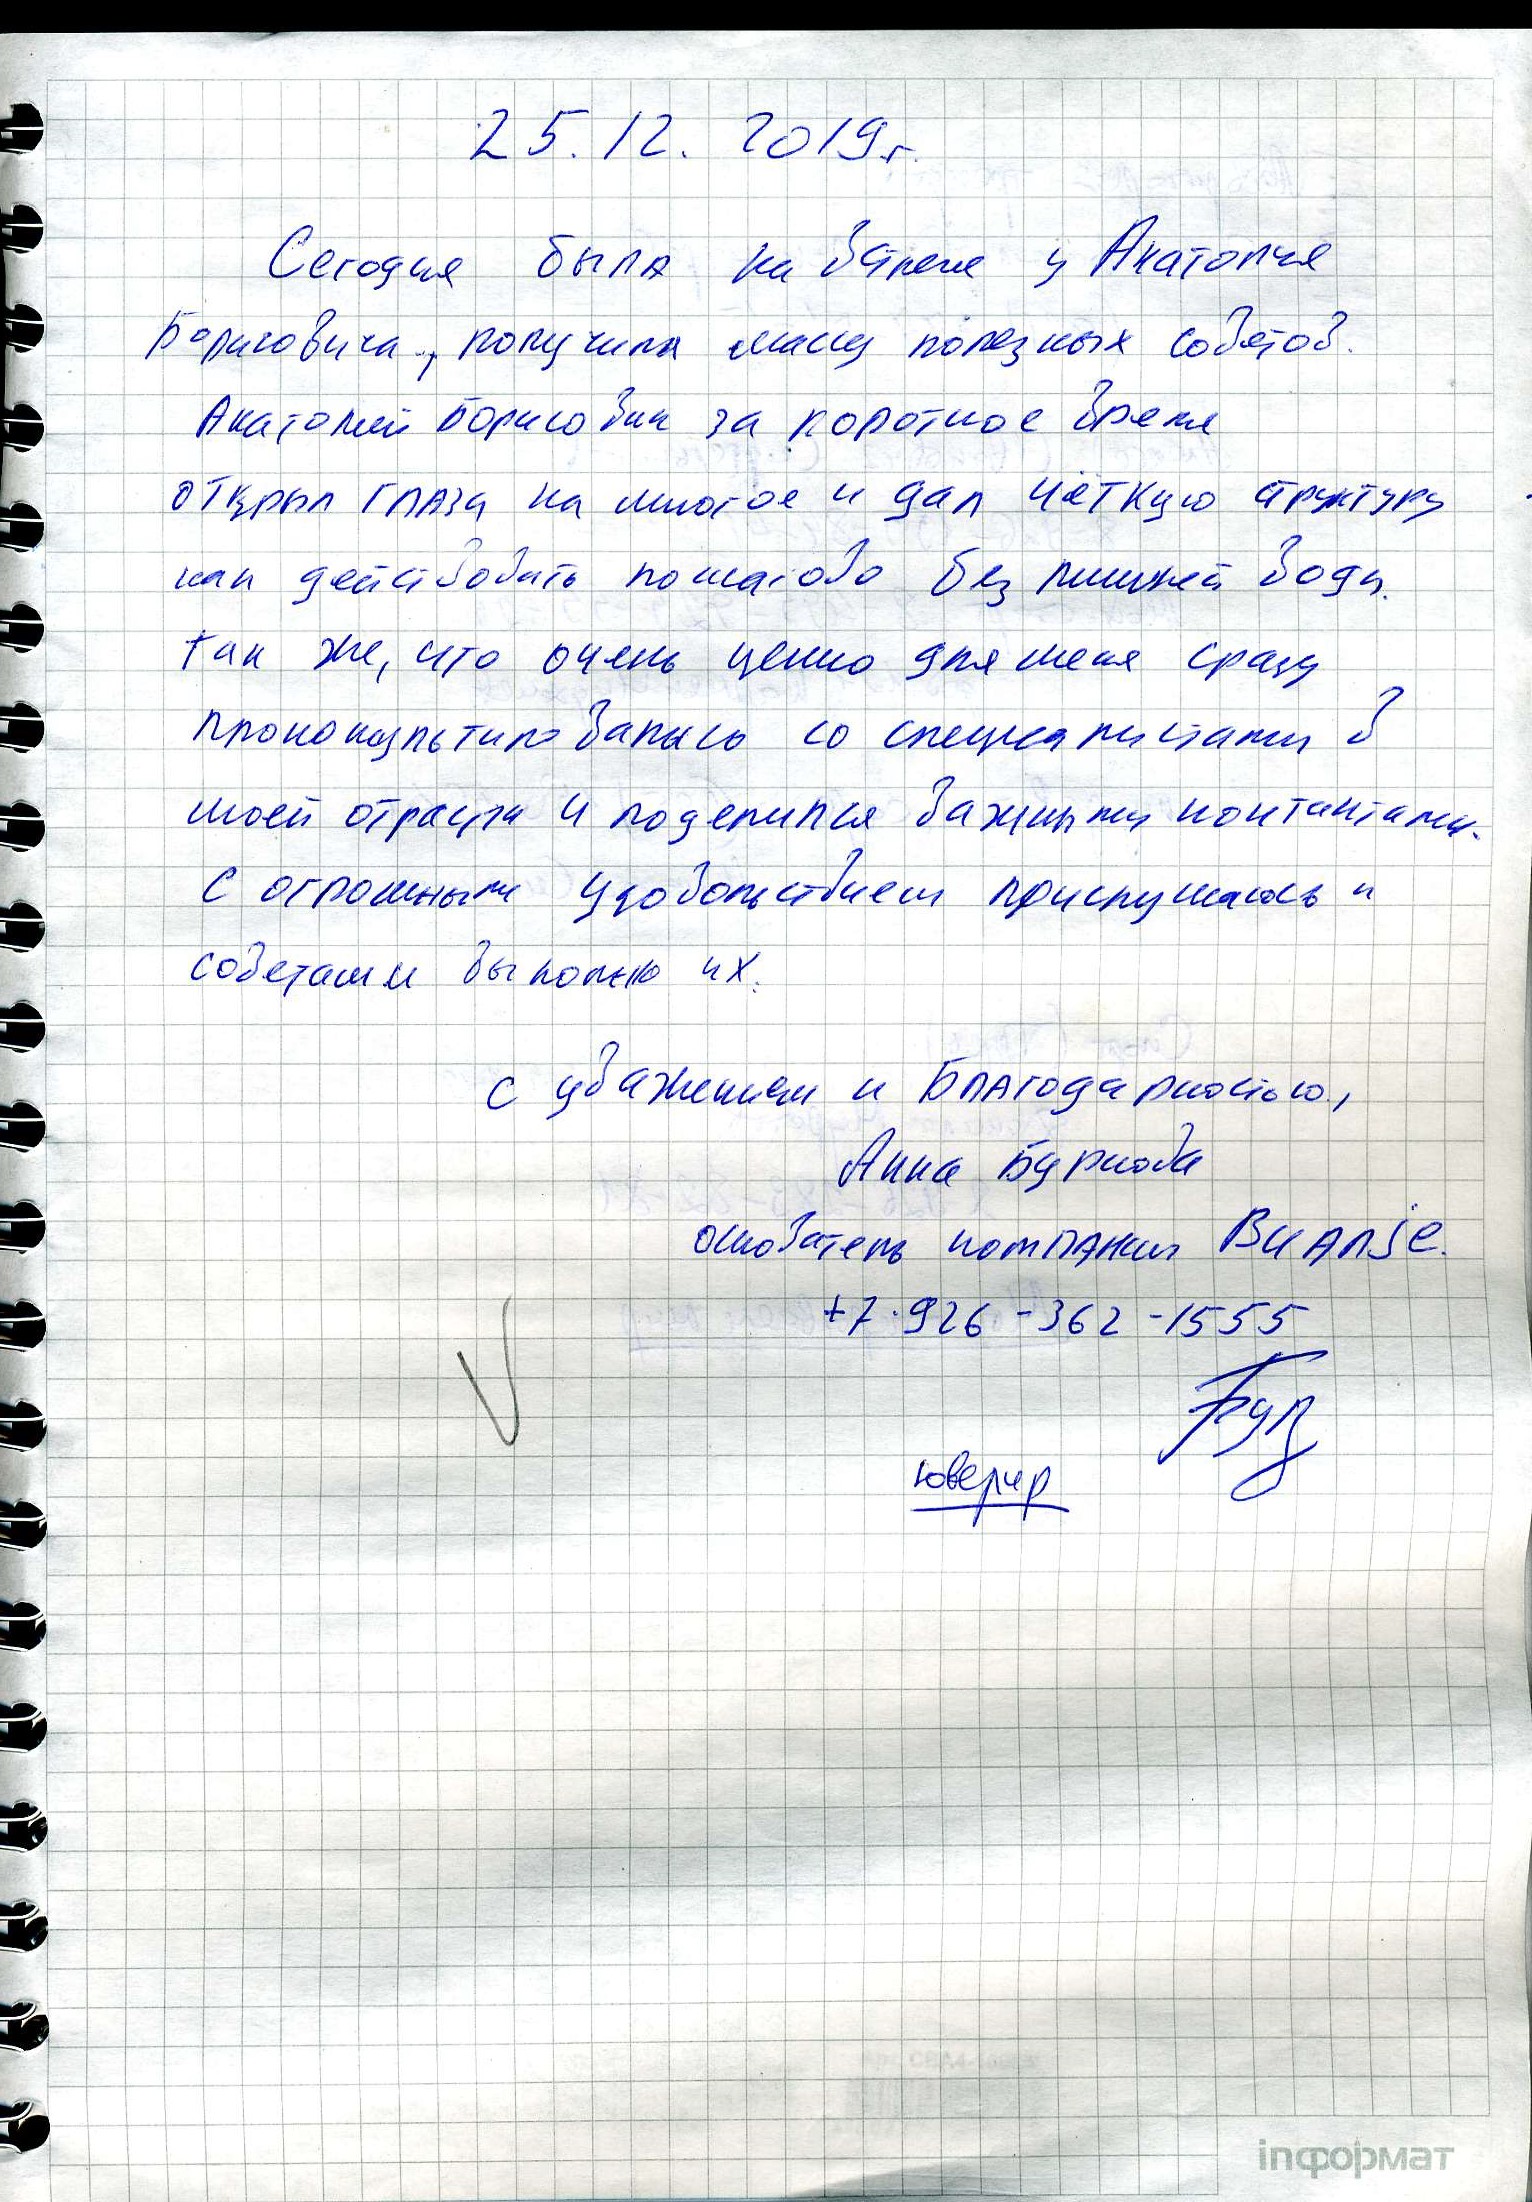 25.12.2019г.
Сегодня была на встрече у Анатолия
Борисовича, получила массу полезных советов.
Анатолий Борисович за короткое время
открыл глаза на многое и дал чёткую структуру
как действовать пошагово без лишней воды.
Так же, что очень ценно для меня сразу
проконсультировались со специалистами в
моей отрасли и поделился важными контактами.
С огромным удовольствием прислушаюсь к
советам и выполню их.
С уважением и Благодарностью,
Анна
основатель компании
+7-926-362-1555
ювелир
inформат